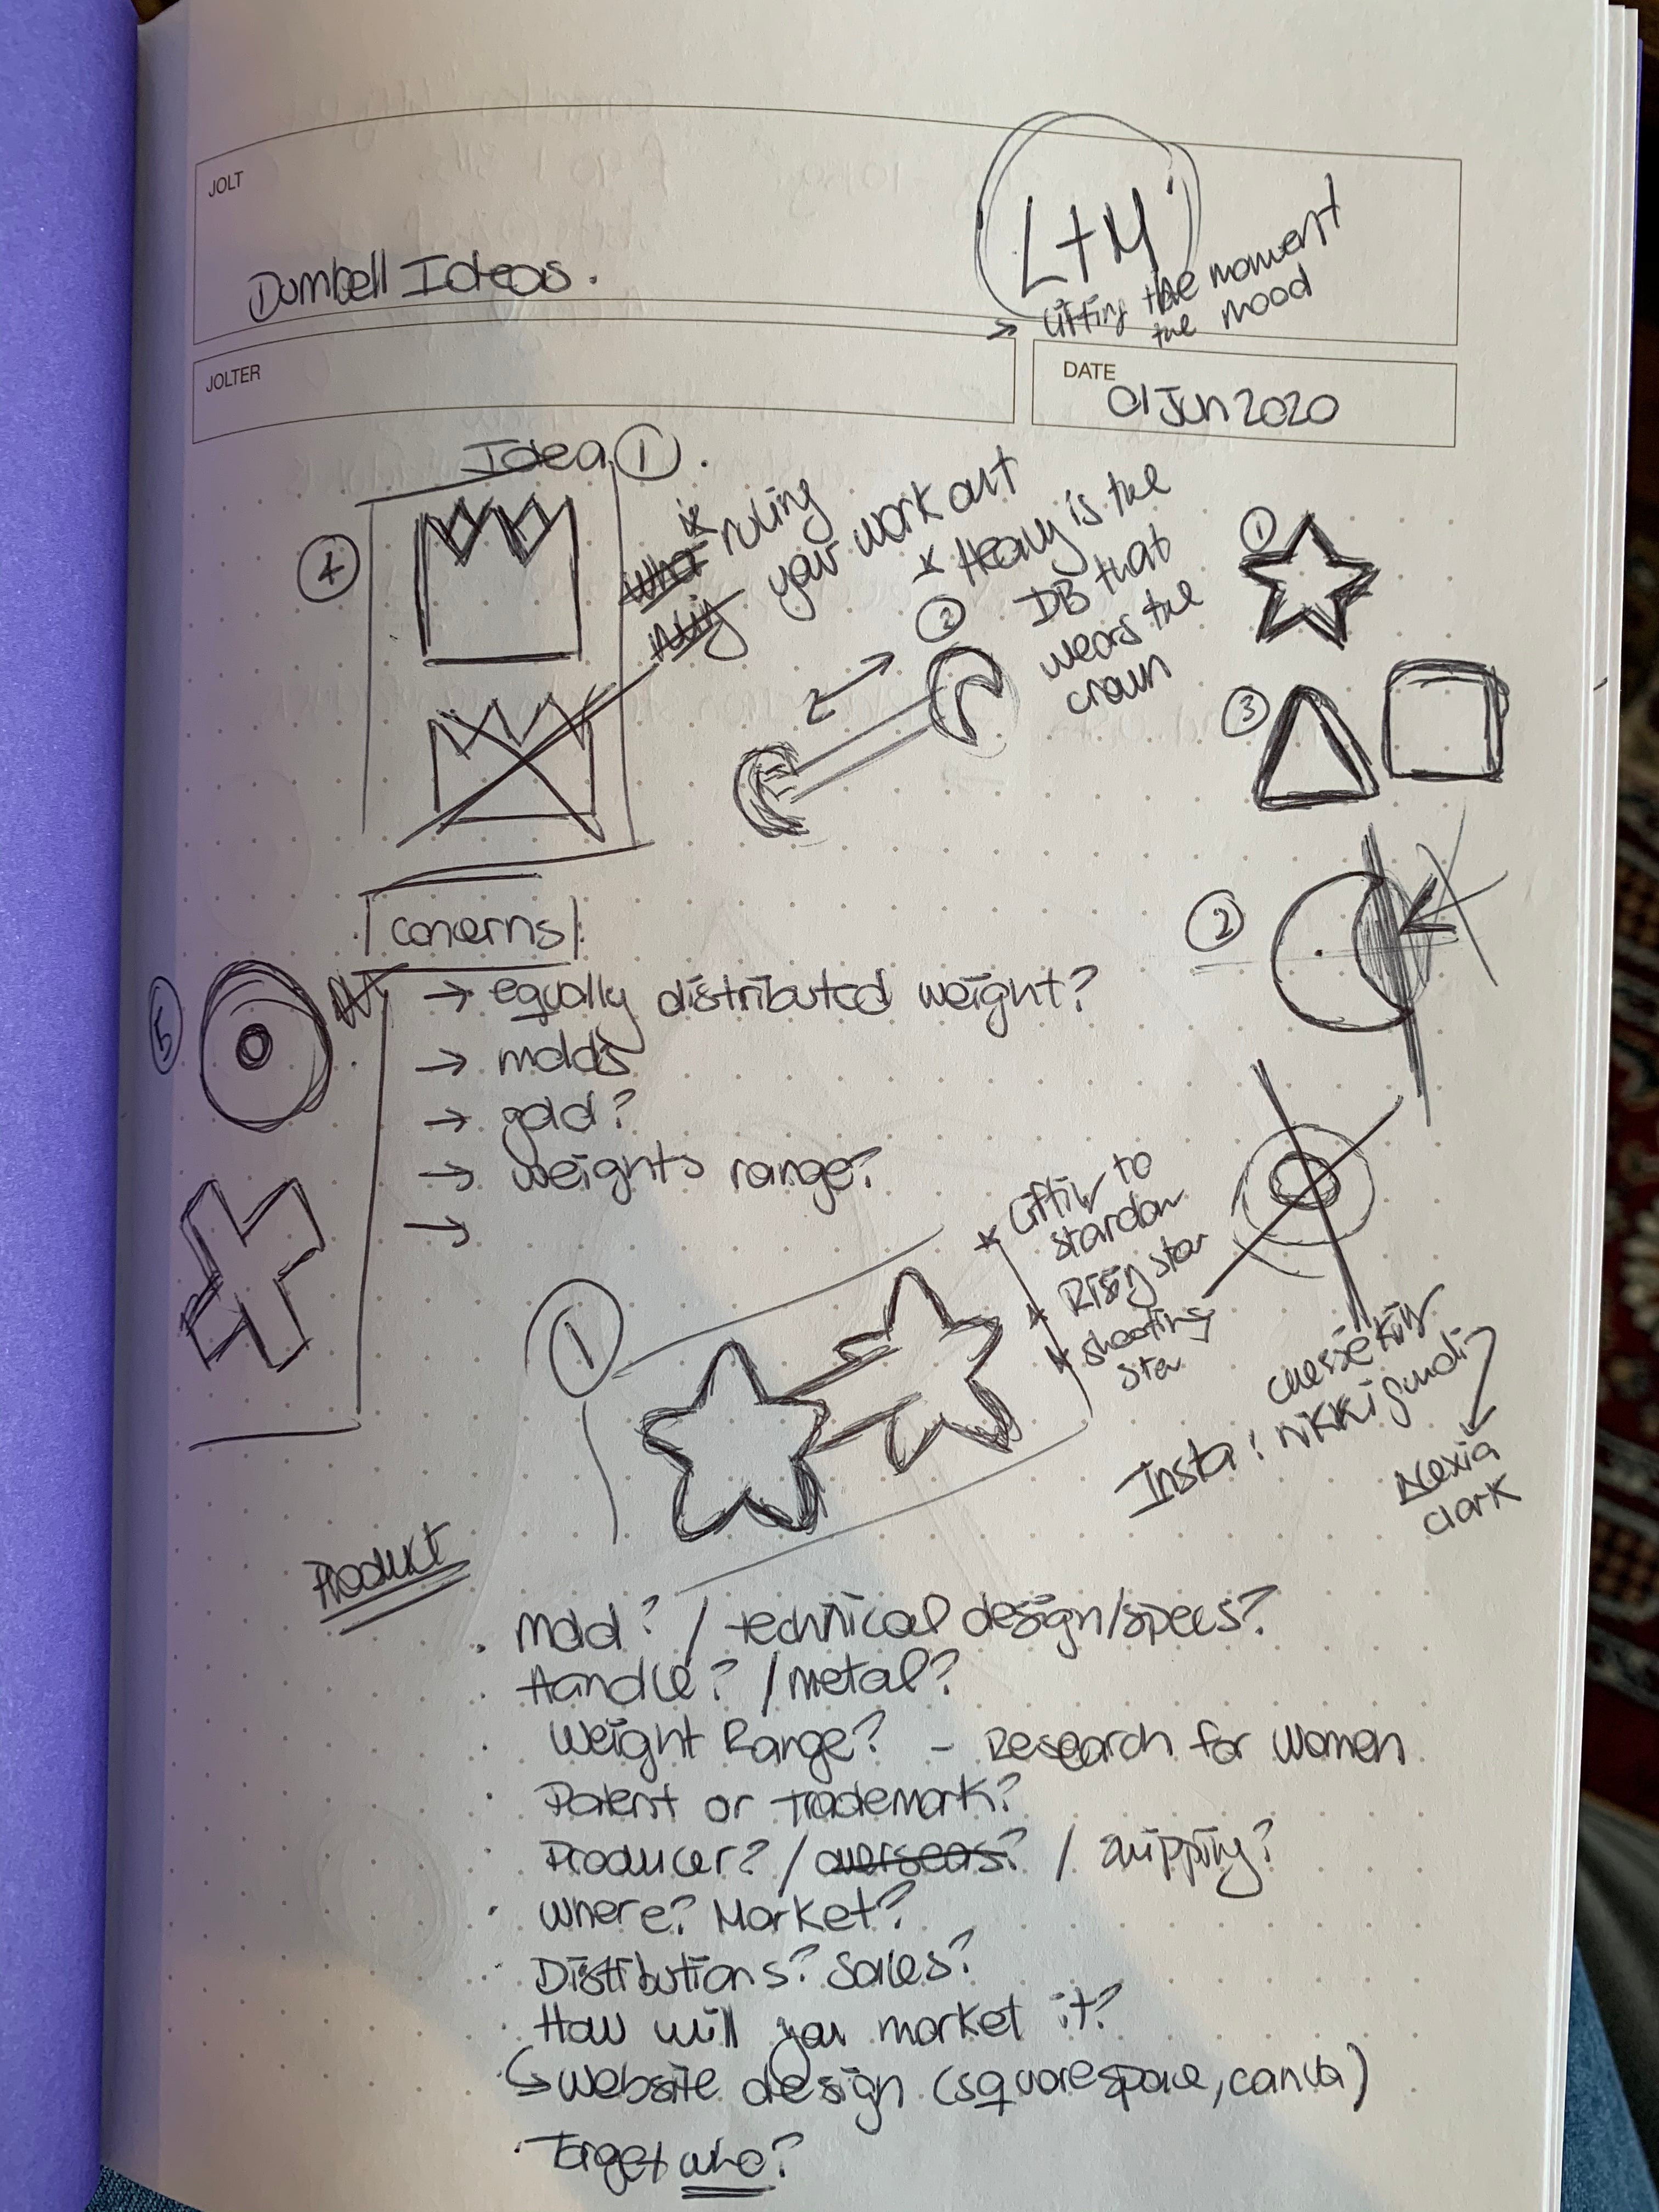 JOLT
Dumbell Ideas.
LTM
Lifting the moment
the mood
JOLTER
DATE
01 Jun 2020
Idea ①.
4
ruling
your work out
* Heavy is the
DB that
wears the
crown
2
1
3
2
Concerns
→ equally distributed weight?
→ molds
→ gold?
→ weights range?
→
5
1
* Lifting to
stardom
* Rising star
* shooting
star
Insta: nikkifundi
Alexia
clark
Product
. Mold? / technical design/specs?
. Handle? / metal?
. Weight Range? - Research for Women
. Patent or trademark?
. Producer? / overseas? / shipping?
. Where? Market?
. Distributions? Sales?
. How will you market it?
↳ website design (squarespace, canva)
. Target who?